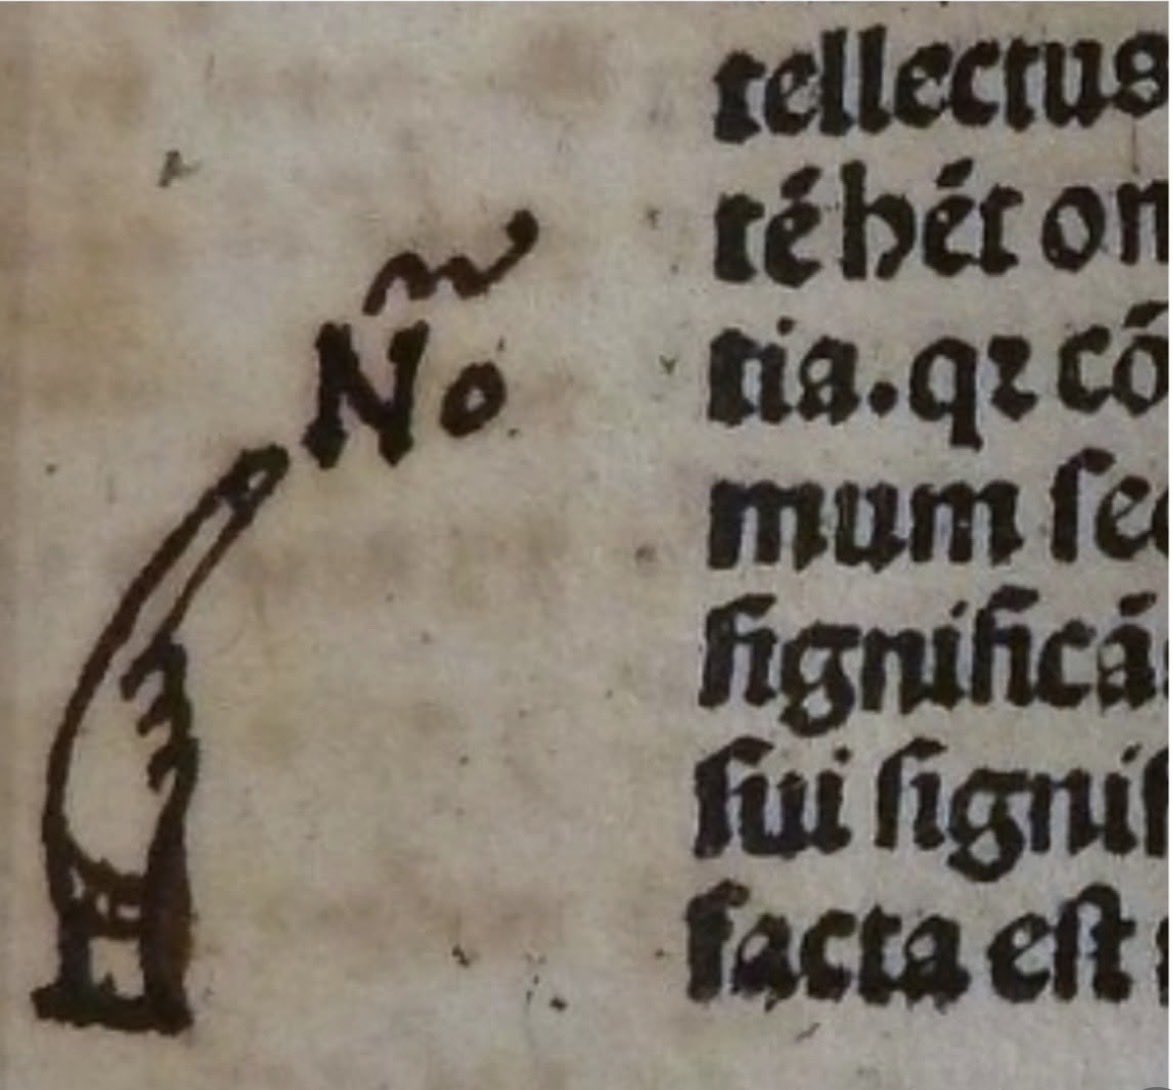 No
tellectus
té hét on
tia. qꝛ có
mum sec
significá
sui signif
facta est